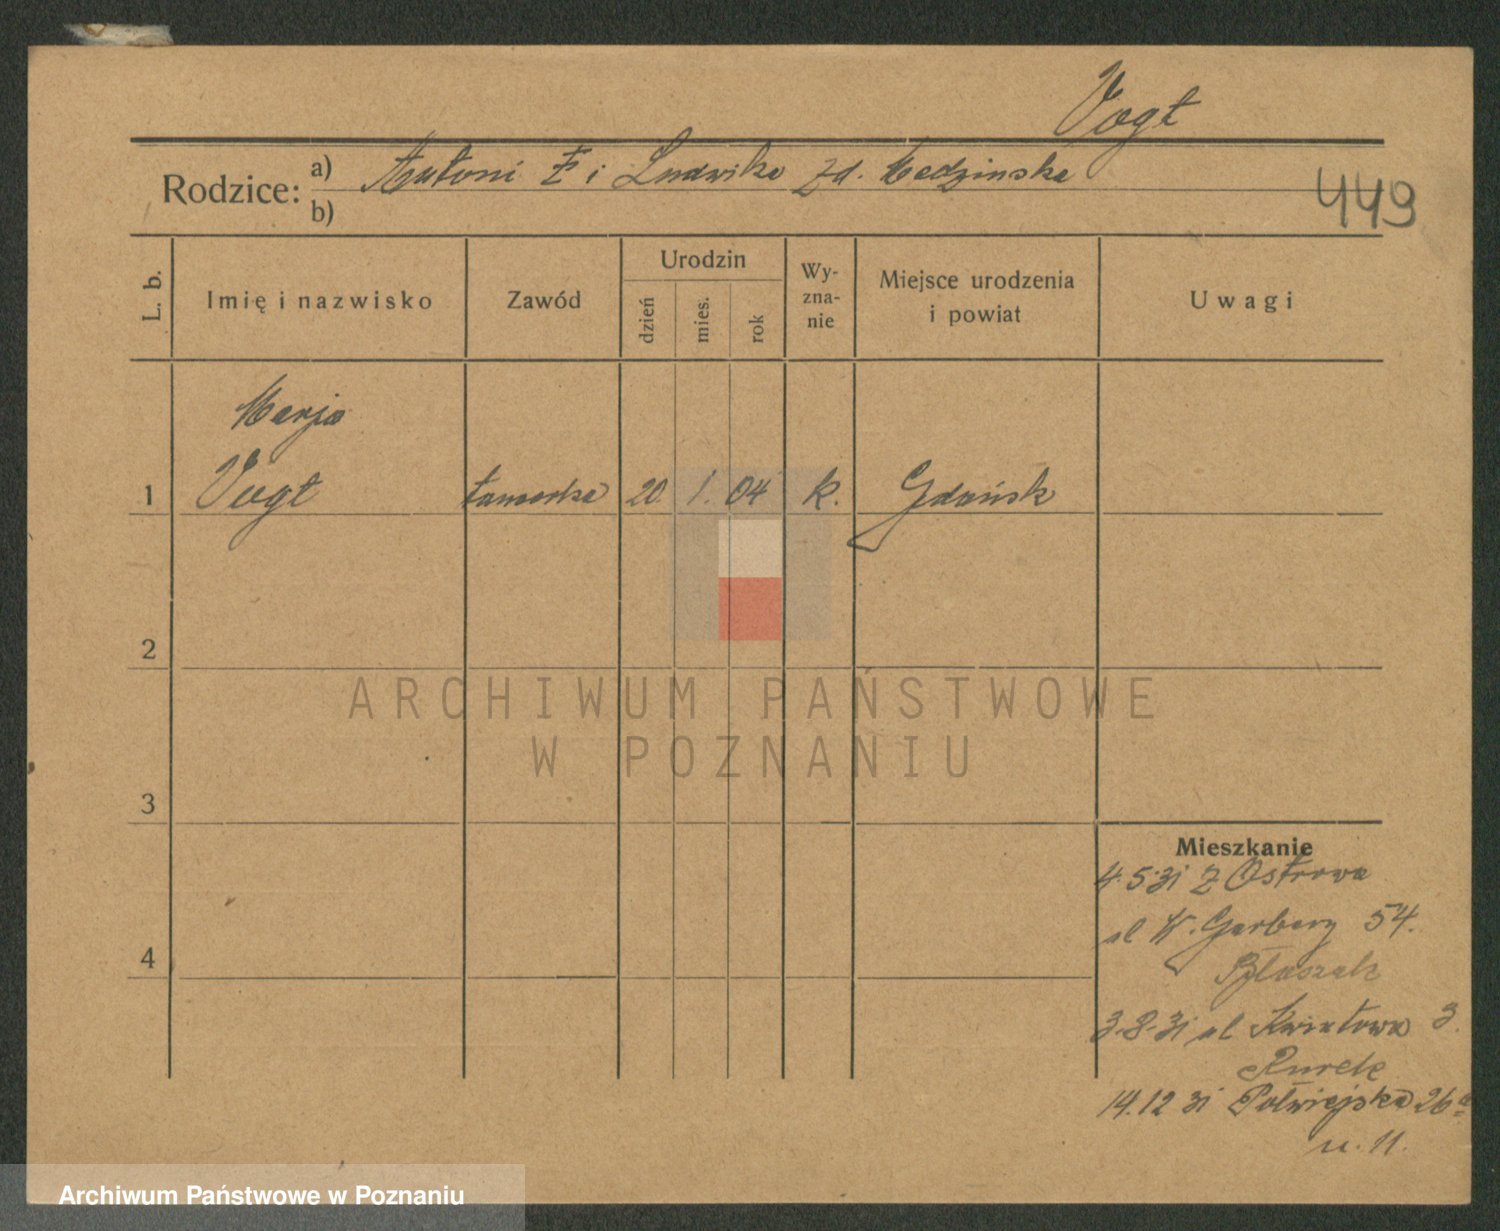 Vogt
Rodzice:
a) Antoni i Ludwika zd. Medzinska
b)
449
L. b.
Imię i nazwisko
Zawód
Urodzin
dzień
mies.
rok
Wy-
zna-
nie
Miejsce urodzenia
i powiat
Uwagi
Marja
1 Vogt 20 1. 04 k. Gdańsk
2
ARCHIWUM PAŃSTWOWE
W POZNANIU
3
4
Mieszkanie
4.5.31 z Ostrowa
ul W. Garbary 54.
Błaszak
3.8.31 ul Kwiatowa 3.
Kurek
14.12 31 Półwiejska 26a
m. 11.
Archiwum Państwowe w Poznaniu